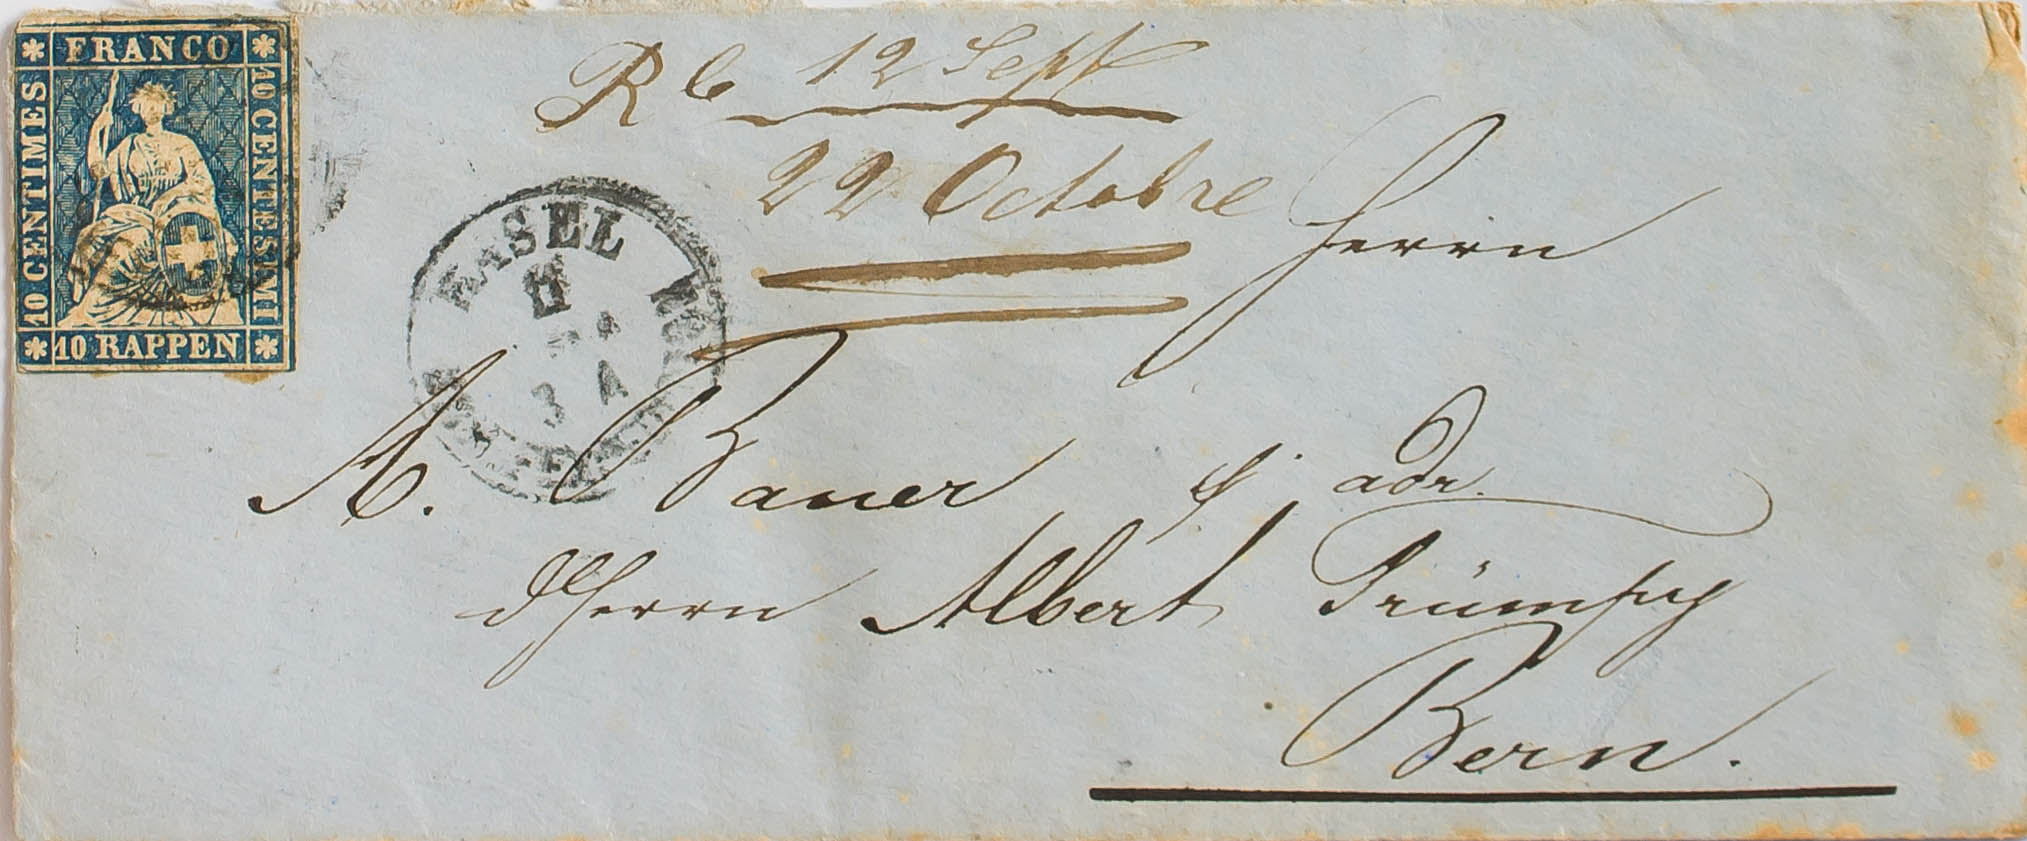 FRANCO
10 CENTIMES
10 CENTESIMI
10 RAPPEN
R 6 12 Sept
22 Octobre
BASEL
11
3 A
Herrn
A. Bauer adr.
dHerrn Albert Trümpy
Bern.